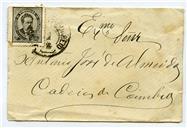 Exmo Senr
Antonio José de Almeida
Cadeias de Coimbra